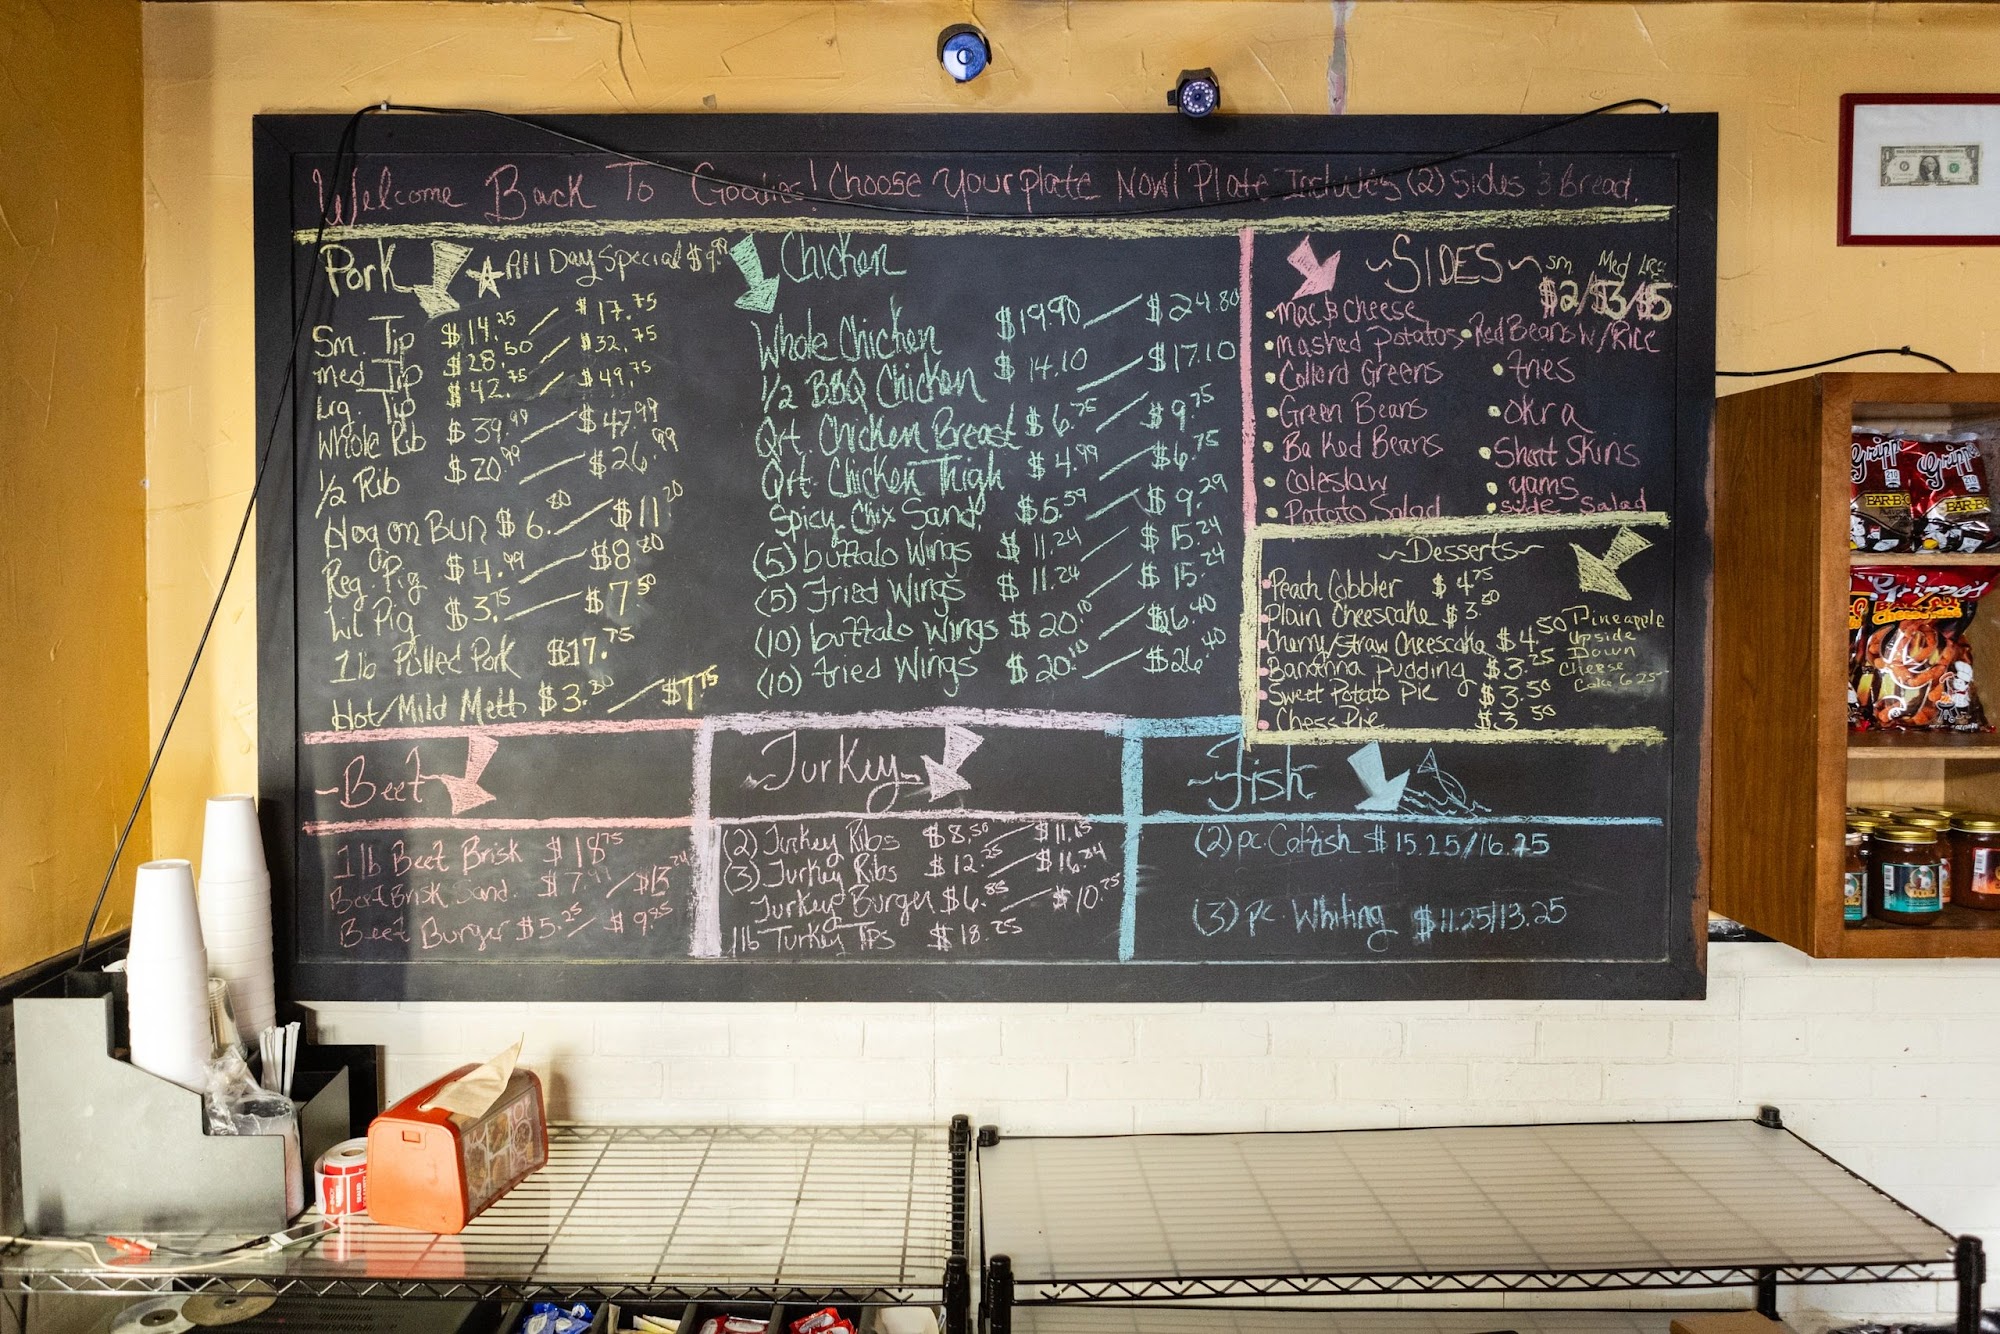 Welcome Back To Goodies! Choose your plate Now! Plate Includes (2) Sides & Bread.
Pork
All Day Special $9.99
Sm. Tip $14.25 / $17.75
Med Tip $28.50 / $32.75
Lrg. Tip $42.75 / $49.75
Whole Rib $39.99 / $47.99
1/2 Rib $20.99 / $26.99
Hog on Bun $6.80 / $11.20
Reg. Pig $4.99 / $8.80
Lil Pig $3.75 / $7.50
1 lb Pulled Pork $17.75
Hot/Mild Mett $3.80 / $7.75
Chicken
Whole Chicken $19.90 / $24.80
1/2 BBQ Chicken $14.10 / $17.10
Qrt. Chicken Breast $6.75 / $9.75
Qrt. Chicken Thigh $4.99 / $6.75
Spicy Chix Sand. $6.59 / $9.29
(5) buffalo Wings $11.24 / $15.24
(5) Fried Wings $11.24 / $15.24
(10) buffalo Wings $20.10 / $26.40
(10) Fried Wings $20.10 / $26.40
~SIDES~
Sm Med Lrg
$2/$3/$5
Mac & Cheese
Mashed Potatos
Collard Greens
Green Beans
Baked Beans
Coleslaw
Patato Salad
Red Beans w/Rice
Fries
Okra
Short Skins
yams
side Salad
~Desserts~
Peach Cobbler $4.75
Plain Cheescake $3.50
Cherry/Straw Cheescake $4.50
Bananna Pudding $3.25
Sweet Potato Pie $3.50
Chess Pie $3.50
Pineapple
Upside
Down
Cheese
Cake 6.25
~Beef~
1 lb Beef Brisk $18.75
Beef Brisk Sand. $7.99 / $13.24
Beef Burger $5.25 / $9.85
~Turkey~
(2) Turkey Ribs $8.50 / $11.15
(3) Turkey Ribs $12.25 / $16.84
Turkey Burger $6.85 / $10.75
1lb Turkey TPs $18.25
~Fish~
(2) pc. Catfish $15.25/16.25
(3) pc. Whiting $11.25/13.25
Grippo's
BAR-B-Q
BAR-B-Q
Grippo's